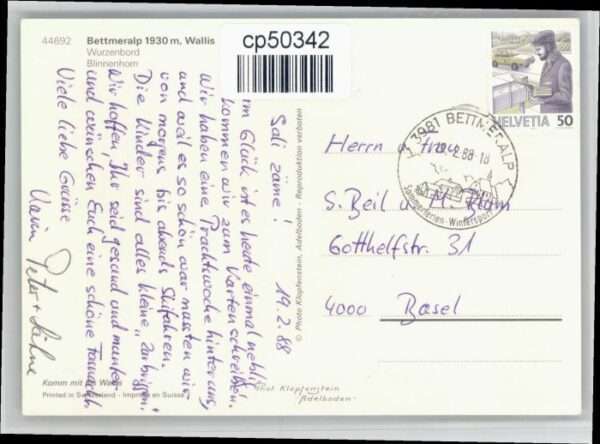 44692 Bettmeralp 1930 m, Wallis
Wurzenbord
Blinnenhorn
cp50342
HELVETIA 50
3981 BETTMERALP
.2.88-18
Sommerferien - Wintersport
19.2.88
Sali zäme!
Im Glück ist es heute einmal neblig,
kommen wir zum Karten schreiben!
Wir haben eine Prachtwoche hinter uns,
und weil es so schön war mussten wir
von morgens bis abends Skifahren.
Die Kinder sind alles kleine "Zurbriggen".
Wir hoffen, Ihr seid gesund und munter
und wünschen Euch eine schöne
Viele liebe Grüsse
Karin Peter + Söhne
Herrn u. Frau
S. Beil u. M.
Gotthelfstr. 31
4000 Basel
© Photo Klopfenstein, Adelboden - Reproduktion verboten
Komm mit ins Wallis
Printed in Switzerland - Imprimé en Suisse
Photo Klopfenstein
Adelboden